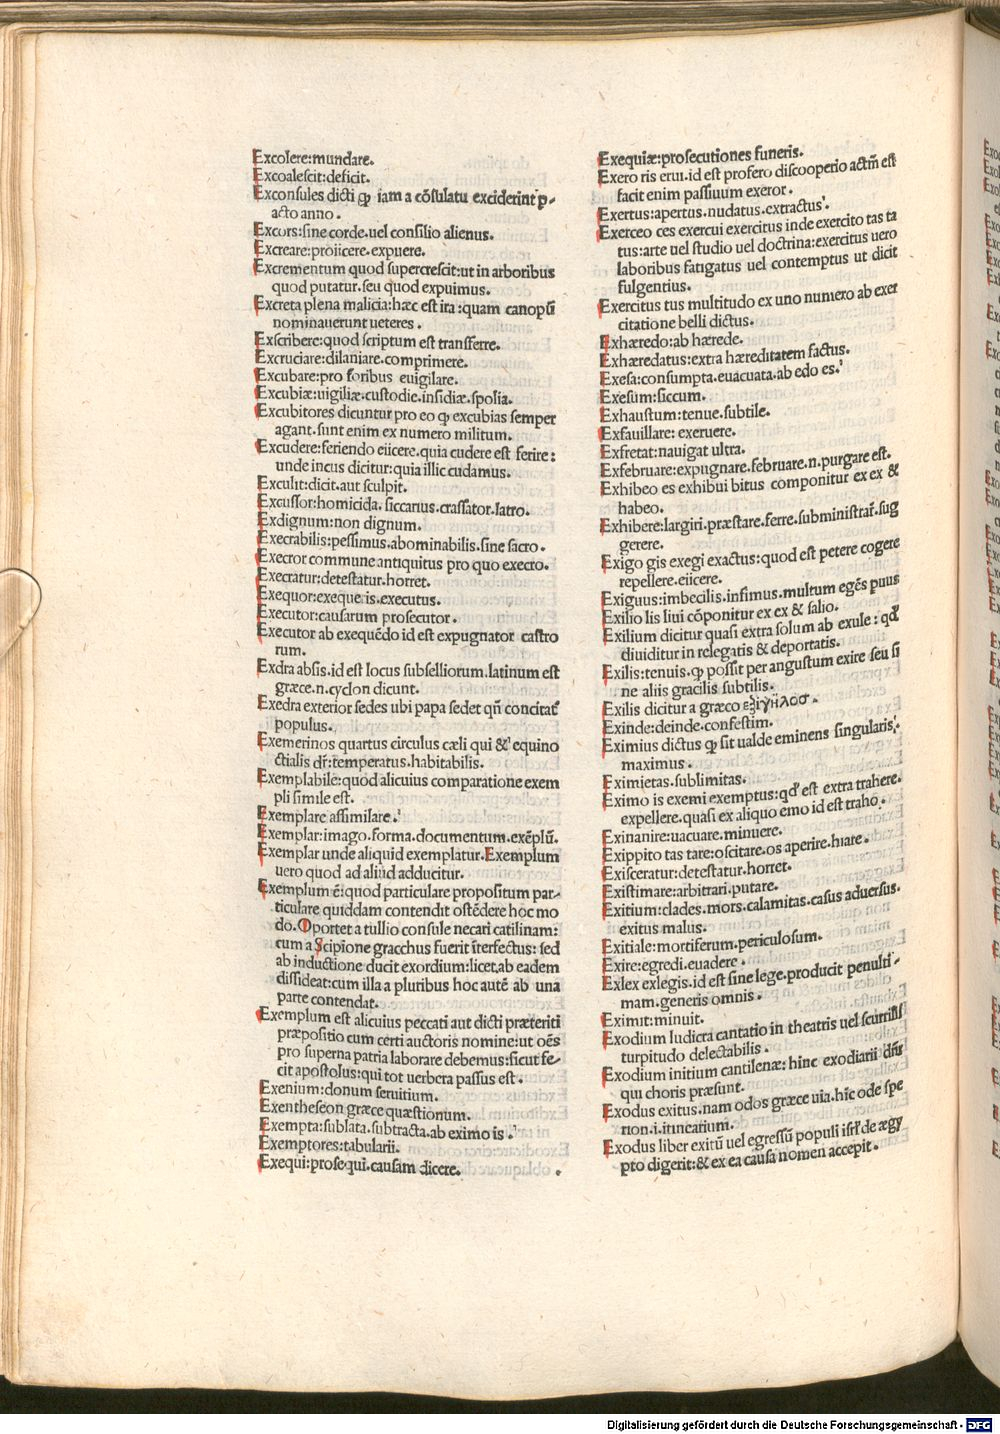 Excolere:mundare.
Excoalescit:deficit.
Exconsules dicti ꝙ iam a cōsulatu exciderint p-
acto anno.
Excors:sine corde.uel consilio alienus.
Excreare:proiicere.expuere.
Excrementum quod supercrescit:ut in arboribus
quod putatur.seu quod expuimus.
Excreta plena malicia:hæc est ira:quam canopū
nominauerunt ueteres.
Exscribere:quod scriptum est transferre.
Excruciare:dilaniare.comprimere.
Excubare:pro foribus euigilare.
Excubiæ:uigiliæ.custodie.insidiæ.spolia.
Excubitores dicuntur pro eo ꝙ excubias semper
agant.sunt enim ex numero militum.
Excudere:feriendo eiicere.quia cudere est ferire:
unde incus dicitur:quia illic cudamus.
Exculit:dicit.aut sculpit.
Excussor:homicida.siccarius.crassator.latro.
Exdignum:non dignum.
Execrabilis:pessimus.abominabilis.sine sacro.
Execror commune antiquitus pro quo execro.
Execratur:detestatur.horret.
Exequor:exequeris.executus.
Executor:causarum prosecutor.
Executor ab exequēdo id est expugnator castro
rum.
Exdra absis.id est locus subselliorum.latinum est
græce.n.cyclon dicunt.
Exedra exterior sedes ubi papa sedet qn̄ concitat᷒
populus.
Exemerinos quartus circulus cæli qui & equino
ctialis dr̄:temperatus.habitabilis.
Exemplabile:quod alicuius comparatione exem
pli simile est.
Exemplare assimilare.
Exemplar:imago.forma.documentum.exēplū.
Exemplar unde aliquid exemplatur.Exemplum
uero quod ad aliud adducitur.
Exemplum ē:quod particulare propositum par-
ticulare quiddam contendit ostēdere hoc mo
do.Oportet a tullio consule necari catilinam:
cum a Scipione gracchus fuerit īterfectus: sed
ab inductione ducit exordium:licet.ab eadem
dissideat:cum illa a pluribus hoc autē ab una
parte contendat.
Exemplum est alicuius peccati aut dicti præteriti
præpositio cum certi auctoris nomine:ut oēs
pro superna patria laborare debemus:sicut fe-
cit apostolus:qui tot uerbera passus est.
Exenium:donum seruitium.
Exentheseon græce quæstionum.
Exempta:sublata.subtracta.ab eximo is.
Exemptores:tabularii.
Exequi:prosequi.causam dicere.
Exequiæ:prosecutiones funeris.
Exero ris erui.id est profero discooperio actm̄ est
facit enim passiuum exeror.
Exertus:apertus.nudatus.extractus.
Exerceo ces exercui exercitus inde exercito tas ta
tus:arte uel studio uel doctrina:exercitus uero
laboribus fatigatus uel contemptus ut dicit
fulgentius.
Exercitus tus multitudo ex uno numero ab exer
citatione belli dictus.
Exhæredo:ab hærede.
Exhæredatus:extra hæreditatem factus.
Exesa:consumpta.euacuata.ab edo es.
Exesum:siccum.
Exhaustum:tenue.subtile.
Exfauillare: exeruere.
Exfretat:nauigat ultra.
Exfebruare:expugnare.februare.n.purgare est.
Exhibeo es exhibui bitus componitur ex ex &
habeo.
Exhibere:largiri.præstare.ferre.subministrar̄.sug
gerere.
Exigo gis exegi exactus:quod est petere cogere
repellere.eiicere.
Exiguus:imbecilis.infimus.multum egēs puus
Exilio lis liui cōponitur ex ex & salio.
Exilium dicitur quasi extra solum ab exule: qd̄
diuiditur in relegatis & deportatis.
Exilis:tenuis.ꝙ possit per angustum exire seu si
ne aliis gracilis subtilis.
Exilis dicitur a græco εξιγηλοσ.
Exinde:deinde.confestim.
Eximius dictus ꝙ sit ualde eminens singularis.
maximus.
Eximietas.sublimitas.
Eximo is exemi exemptus:qd̄ est extra trahere.
expellere.quasi ex aliquo emo id est traho.
Exinanire:uacuare.minuere.
Exippito tas tare:oscitare.os aperire.hiare.
Exisceratur:detestatur.horret.
Existimare:arbitrari.putare.
Exitium:clades.mors.calamitas.casus aduersus.
exitus malus.
Exitiale:mortiferum.periculosum.
Exire:egredi.euadere.
Exlex exlegis.id est sine lege.producit penulti-
mam.generis omnis.
Eximit:minuit.
Exodium ludicra cantatio in theatris uel scurrilis
turpitudo delectabilis.
Exodium initium cantilenæ: hinc exodiarii dn̄r
qui choris præsunt.
Exodus exitus.nam odos græce uia.hic ode spe
rion.i.itinerarium.
Exodus liber exitū uel egressū populi isrl̄ de ægy
pto digerit:& ex ea causa nomen accepit.
Digitalisierung gefördert durch die Deutsche Forschungsgemeinschaft - DFG